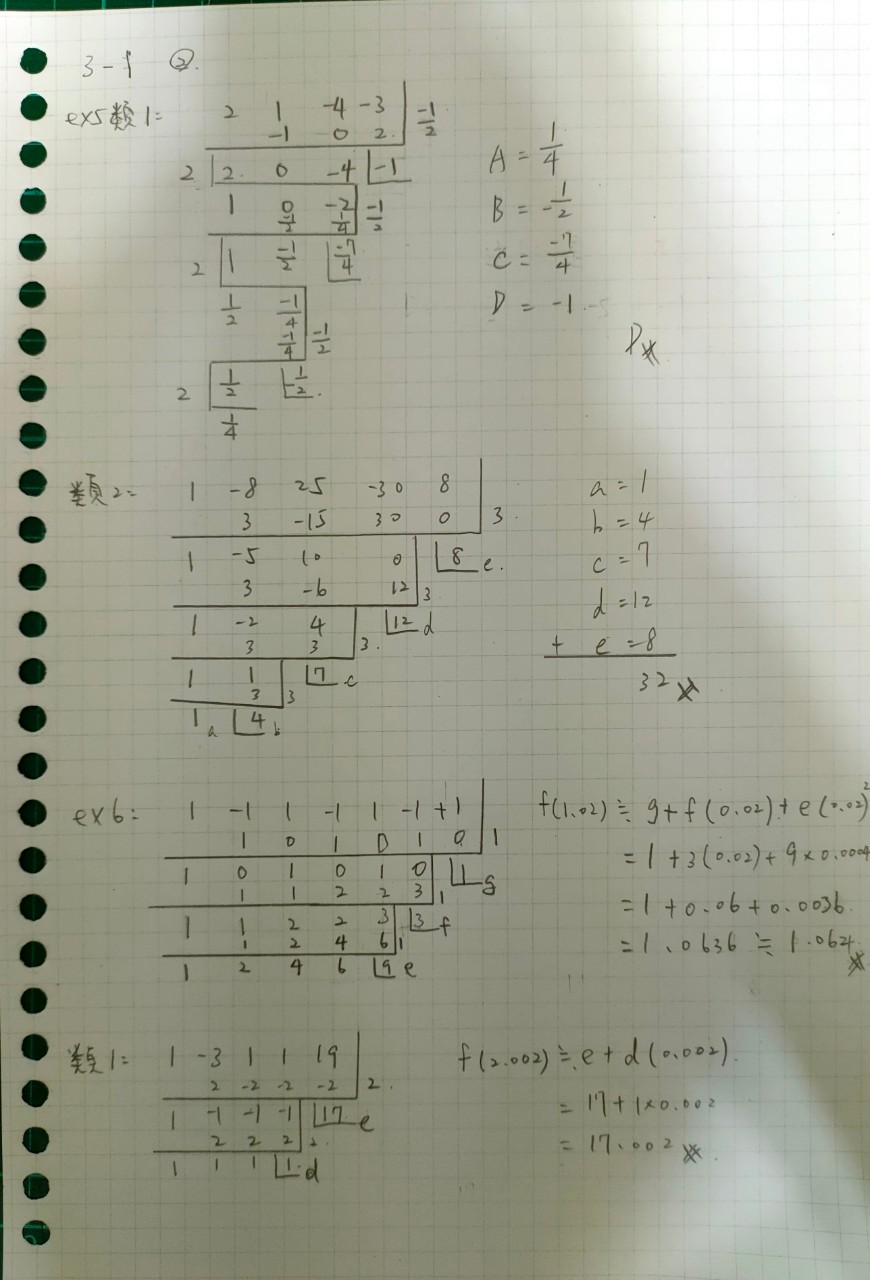 3-1 ②.
ex5類1= 2 1 -4 -3
-1 0 2 -1/2
2 2. 0 -4 -1
1 0 -2 -1/2
-1/2 1/4
2 1 -1/2 -7/4
1/2 -1/4
-1/4 -1/2
2 1/2 -1/2.
1/4
A = 1/4
B = -1/2
C = -7/4
D = -1
類2= 1 -8 25 -30 8
3 -15 30 0 3.
1 -5 10 0 8 e.
3 -6 12 3
1 -2 4 12 d
3 3 3.
1 1 7 c
3 3
1 a 4 b
a = 1
b = 4
c = 7
d = 12
+ e = 8
32
ex6: 1 -1 1 -1 1 -1 +1
1 0 1 0 1 0 1
1 0 1 0 1 0 1 g
1 1 2 2 3 1
1 1 2 2 3 3 f
1 2 4 6 1
1 2 4 6 9 e
f(1.02) ≒ g + f(0.02) + e(0.02)²
= 1 + 3(0.02) + 9 × 0.0004
= 1 + 0.06 + 0.0036.
= 1.0636 ≒ 1.064
類1= 1 -3 1 1 19
2 -2 -2 -2 2.
1 -1 -1 -1 17 e
2 2 2 2.
1 1 1 1 d
f(2.002) ≒ e + d(0.002).
= 17 + 1×0.002
= 17.002